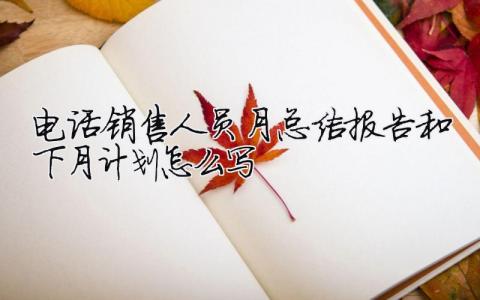 电话销售人员月总结报告和
下月计划怎么写